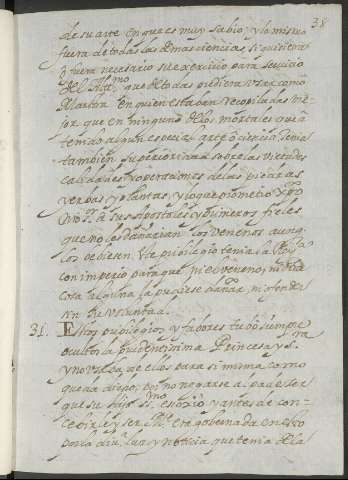 38
de su arte en que es muy sabio; y lo mismo
fuera de todas las demas ciencias si quisiera
o fuera necesario su exercicio para servicio
del Altmo que de todas pudiera usar como
Maestra en quien estaban recopiladas me-
jor que en ninguno de los mortales que a
tenido algun especial arte o ciencia. Tenia
tambien superioridad sobre las virtudes
calidades y operaciones de las piedras
yerbas y plantas, y lo que prometio Xpto
Nro Sr. a sus Apostales y primeros fieles
que no les dañarian los venenos aunq
los vebiesen. Este privilegio tenia la Reyna
con imperio para que ni el veneno, ni otra
cosa alguna la pudiese dañar ni ofender
sin su voluntad.
31. Estos privilegios y fabores tubo siempre
ocultos la prudentisima Princesa y Sra
y no usaba de ellos para si misma como
queda dicho, por no negarse a padecer
que su hijo Smo escojio y antes de con-
cebirle y ser Me era gobernada en esto
por la divª luz y noticia que tenia de la